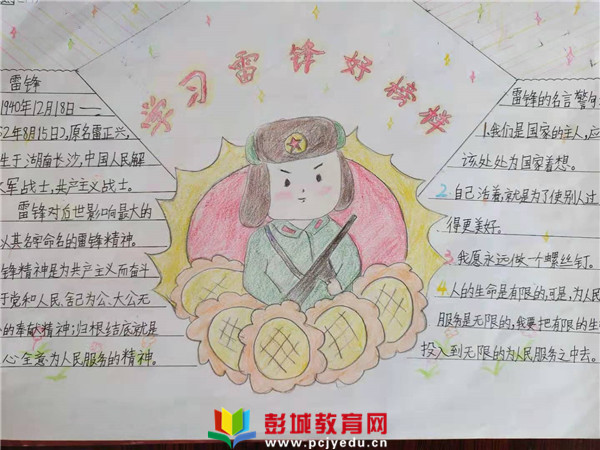 学习雷锋好榜样
雷锋
1940年12月18日—
62年8月15日),原名雷正兴,
生于湖南长沙,中国人民解
军战士,共产主义战士。
雷锋对后世影响最大的
以其名字命名的雷锋精神。
锋精神是为共产主义而奋斗
于党和人民、舍己为公、大公无
的奉献精神;归根结底就是
心全意为人民服务的精神。
雷锋的名言警句
1.我们是国家的主人,应
该处处为国家着想。
2.自己活着,就是为了使别人过
得更美好。
3.我愿永远做一个螺丝钉。
4.人的生命是有限的,可是,为人民
服务是无限的,我要把有限的生
投入到无限的为人民服务之中去。
彭城教育网
www.pcjyedu.cn